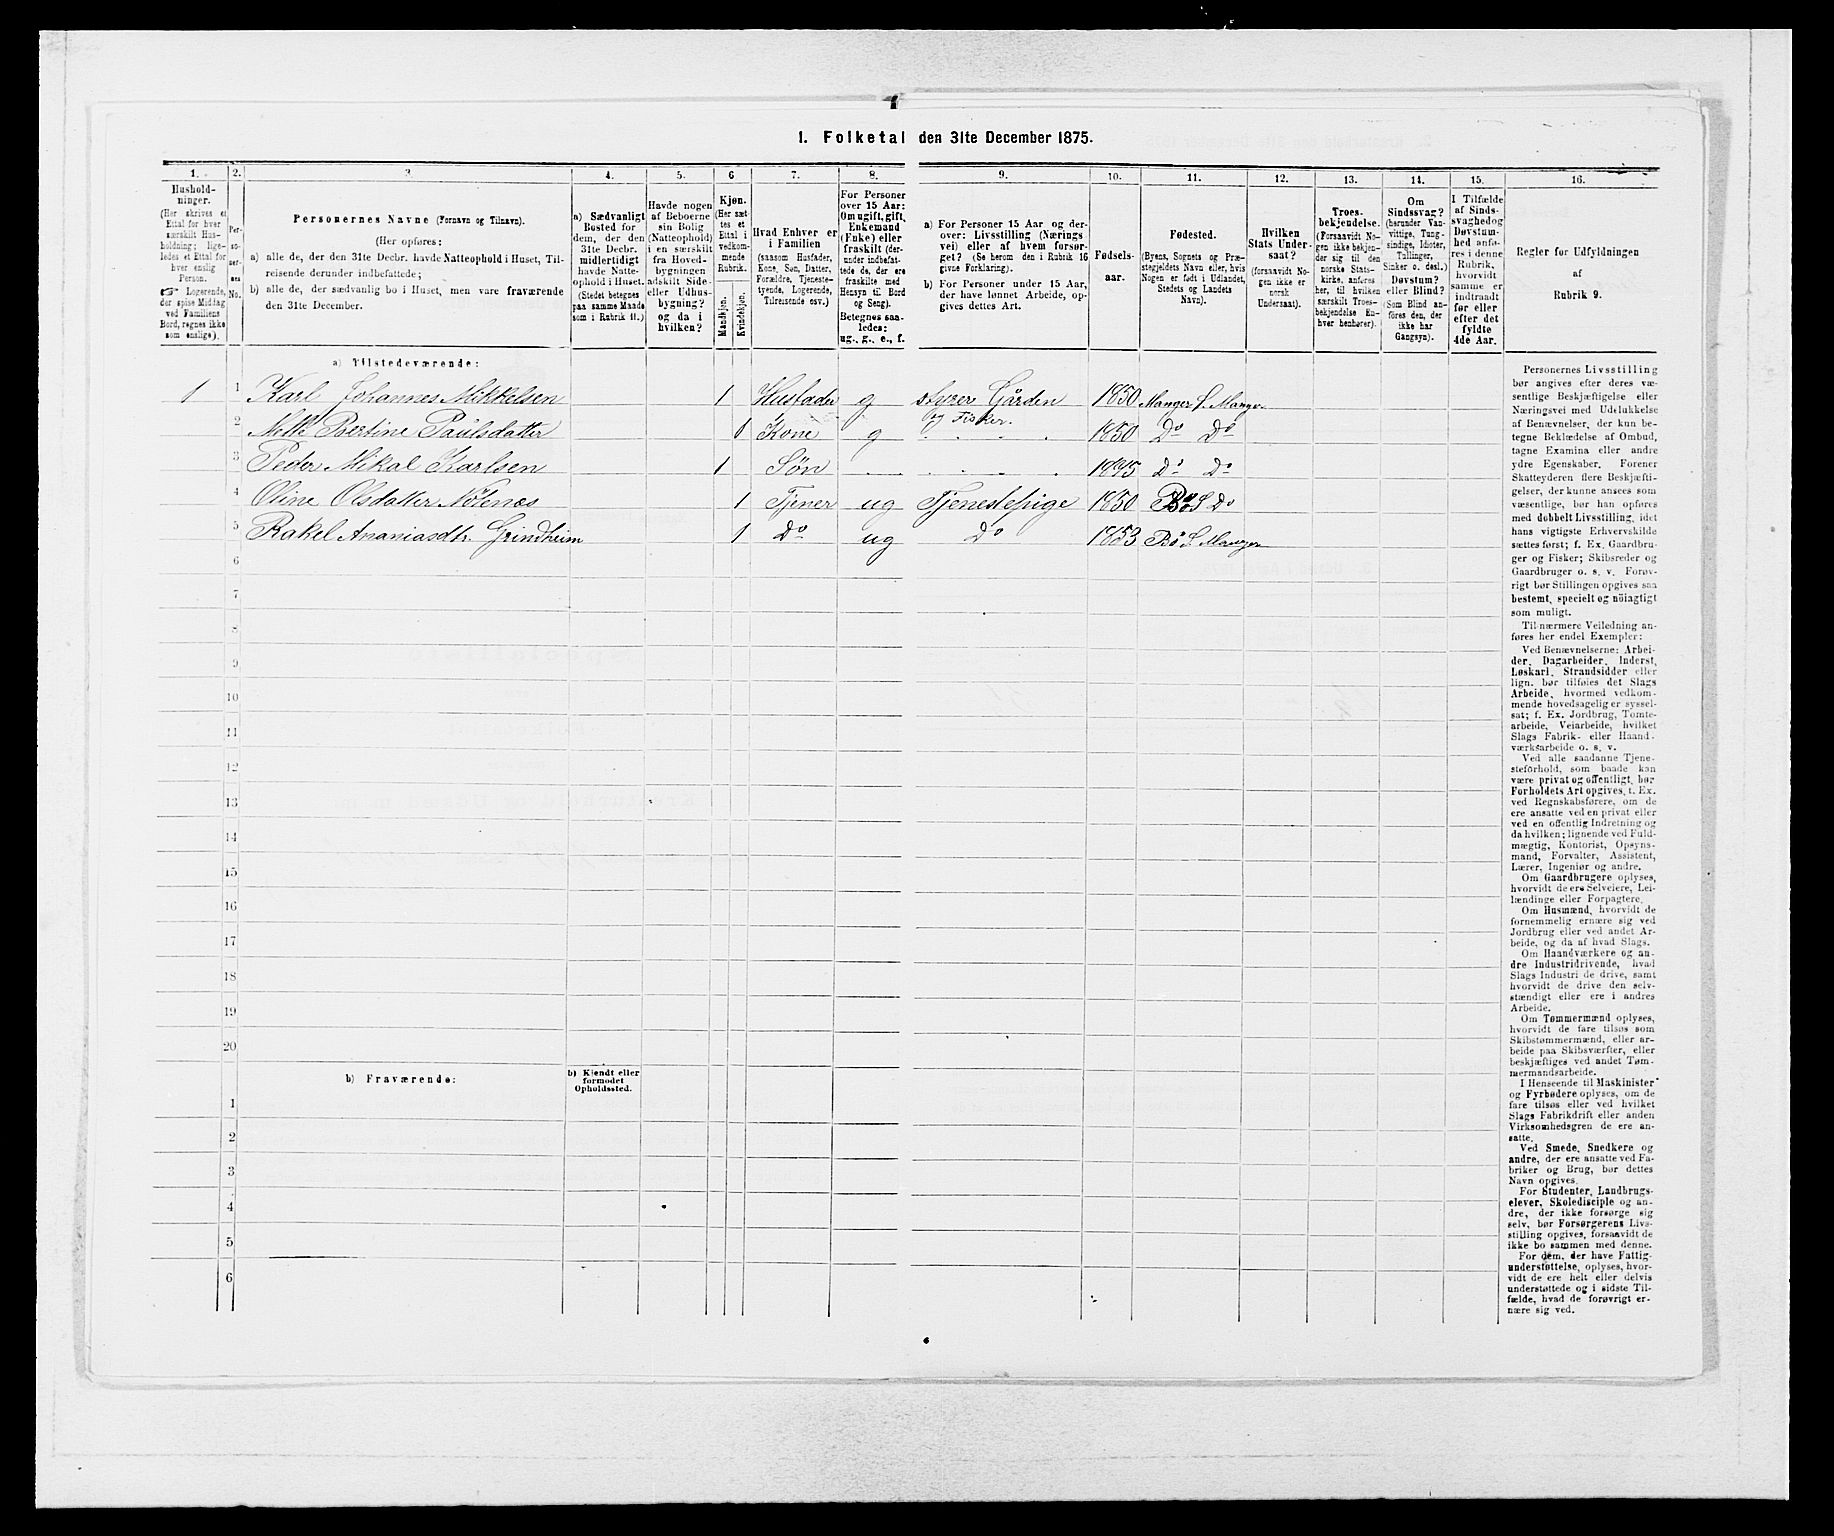 1. Folketal den 31te December 1875.
1. 2. 3. 4. 5. 6 7. 8. 9. 10. 11. 12. 13. 14. 15. 16.
Hushold-
ninger.
(Her skrives et
Ettal for hver
særskilt Hus-
holdning; lige-
ledes et Ettal for
hver enslig
Person.
☞ Logerende,
der spise Middag
ved Familiens
Bord, regnes ikke
som enslige).
Per-
so-
ner-
nes
No.
Personernes Navne (Fornavn og Tilnavn).
(Her opføres:
a) alle de, der den 31te Decbr. havde Natteophold i Huset, Til-
reisende derunder indbefattede;
b) alle de, der sædvanlig bo i Huset, men vare fraværende
den 31te December.
a) Sædvanligt
Bosted for
dem, der den
31te Decbr.
midlertidigt
havde Natte-
ophold i Huset.
(Stedet betegnes
paa samme Maade
som i Rubrik 11.)
Havde nogen
af Beboerne
sin Bolig
(Natteophold)
i en særskilt
fra Hoved-
bygningen
adskilt Side-
eller Udhus-
bygning?
og da i
hvilken?
Kjøn.
(Her sæt-
tes et
Ettal i
vedkom-
mende
Rubrik.
Mandkjøn.
Kvindekjøn.
Hvad Enhver er
i Familien
(saasom Husfader,
Kone, Søn, Datter,
Forældre, Tjeneste-
tyende, Logerende,
Tilreisende osv.)
For Personer
over 15 Aar:
Om ugift, gift,
Enkemand
(Enke) eller
fraskilt (der-
under indbefat-
tede de, der ere
fraskilte med
Hensyn til Bord
og Seng).
Betegnes saa-
ledes:
ug., g., e., f.
a) For Personer 15 Aar og der-
over: Livsstilling (Nærings-
vei) eller af hvem forsør-
get? (Se herom den i Rubrik 16
givne Forklaring).
b) For Personer under 15 Aar,
der have lønnet Arbeide, op-
gives dettes Art.
Fødsels-
aar.
Fødested.
(Byens, Sognets og Præ-
stegjeldets Navn eller, hvis
Nogen er født i Udlandet,
Stedets og Landets
Navn).
Hvilken
Stats Under-
saat?
(forsaavidt No-
gen ikke er
norsk
Undersaat).
Troes-
bekjendelse.
(Forsaavidt No-
gen ikke bekjen-
der sig til den
norske Stats-
kirke, anføres
her, til hvilken
særskilt Troes-
bekjendelse En-
hver henhører).
Om
Sindssvag?
(herunder Van-
vittige, Tung-
sindige, Idioter,
Tullinger,
Sinker o. desl.)
Døvstum?
eller Blind?
(Som Blind an-
føres den, der
ikke har
Gangsyn).
I Tilfælde
af Sinds-
svaghed og
Døvstum-
hed anfø-
res i denne
Rubrik,
hvorvidt
samme er
indtraadt
før eller
efter det
fyldte
4de Aar.
Regler for Udfyldningen
af
Rubrik 9.
a) Tilstedeværende:
1 1 Karl Johannes Mikkelsen 1 Husfader g styrer Gården 1850 Manger S. Manger
og Fisker.
2 Bertine Paulsdatter 1 Kone g 1850 Do Do
3 Peder Mikal Karlsen 1 Søn Do Do
4 Oline Olsdatter 1 Tjener ug Tjenestepige 1850 Bø S Do
5 Rakel Ananiasdtr. Grindheim 1 Do ug Do 1853 Bø S. Manger
6
7
8
9
10
11
12
13
14
15
16
17
18
19
20
b) Fraværende:
b) Kjendt eller
formodet
Opholdssted.
1
2
3
4
5
6
Personernes Livsstilling
bør angives efter deres væ-
sentlige Beskjæftigelse eller
Næringsvei med Udelukkelse
af Benævnelser, der kun be-
tegne Beklædelse af Ombud,
tagne Examina eller andre
ydre Egenskaber. Forener
Skatteyderen flere Beskjæfti-
gelser, der kunne ansees som
væsentlige, bør han opføres
med dobbelt Livsstilling, idet
hans vigtigste Erhvervskilde
sættes først; f. Ex. Gaardbru-
ger og Fisker; Skibsreder og
Gaardbruger o. s. v. Forøv-
rigt bør Stillingen opgives saa
bestemt, specielt og nøiagtigt
som muligt.
Til nærmere Veiledning an-
føres her endel Exempler:
Ved Benævnelserne: Arbei-
der, Dagarbeider, Inderst,
Løskarl, Strandsidder eller
lign. bør tilføies det Slags
Arbeide, hvormed vedkom-
mende hovedsagelig er syssel-
sat; f. Ex. Jordbrug, Tomte-
arbeide, Veiarbeide, hvilket
Slags Fabrik- eller Haand-
værksarbeide o. s. v.
Ved alle saadanne Tjene-
steforhold, som baade kan
være privat og offentligt, bør
Forholdets Art opgives, t. Ex.
ved Regnskabsførere, om de
ere ansatte ved en privat eller
ved en offentlig Indretning og
da hvilken; lignende ved Fuld-
mægtig, Kontorist, Opsyns-
mand, Forvalter, Assistent,
Lærer, Ingeniør og andre.
Om Gaardbrugere oplyses,
hvorvidt de ere Selveiere, Lei-
lændinge eller Forpagtere.
Om Husmænd, hvorvidt de
fornemmelig ernære sig ved
Jordbrug eller ved andet Ar-
beide, og da af hvad Slags.
Om Haandværkere og an-
dre Industridrivende, hvad
Slags Industri de drive, samt
hvorvidt de drive den selv-
stændigt eller ere i andres
Arbeide.
Om Tømmermænd oplyses,
hvorvidt de fare tilsøs som
Skibstømmermænd, eller ar-
beide paa Skibsværfter, eller
beskjæftiges ved andet Tøm-
mermandsarbeide.
I Henseende til Maskinister
og Fyrbødere oplyses, om de
fare tilsøs eller ved hvilket
Slags Fabrikdrift eller anden
Virksomhedsgren de ere an-
satte.
Ved Smede, Snedkere og
andre, der ere ansatte ved Fa-
briker og Brug, bør dettes
Navn opgives.
For Studenter, Landbrugs-
elever, Skoledisciple og an-
dre, der ikke forsørge sig
selv, bør Forsørgerens Livs-
stilling opgives, forsaavidt de
ikke bo sammen med denne.
For dem, der have Fattig-
understøttelse, oplyses, hvor-
vidt de ere helt eller delvis
understøttede og i sidste Til-
fælde, hvad de forøvrigt er-
nære sig ved.